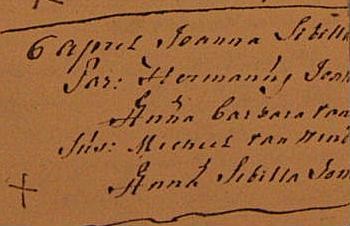 6 april Joanna Sibilla
Par: Hermanus
Anna Barbara van
Sus: Michiel van
Anna Sibilla